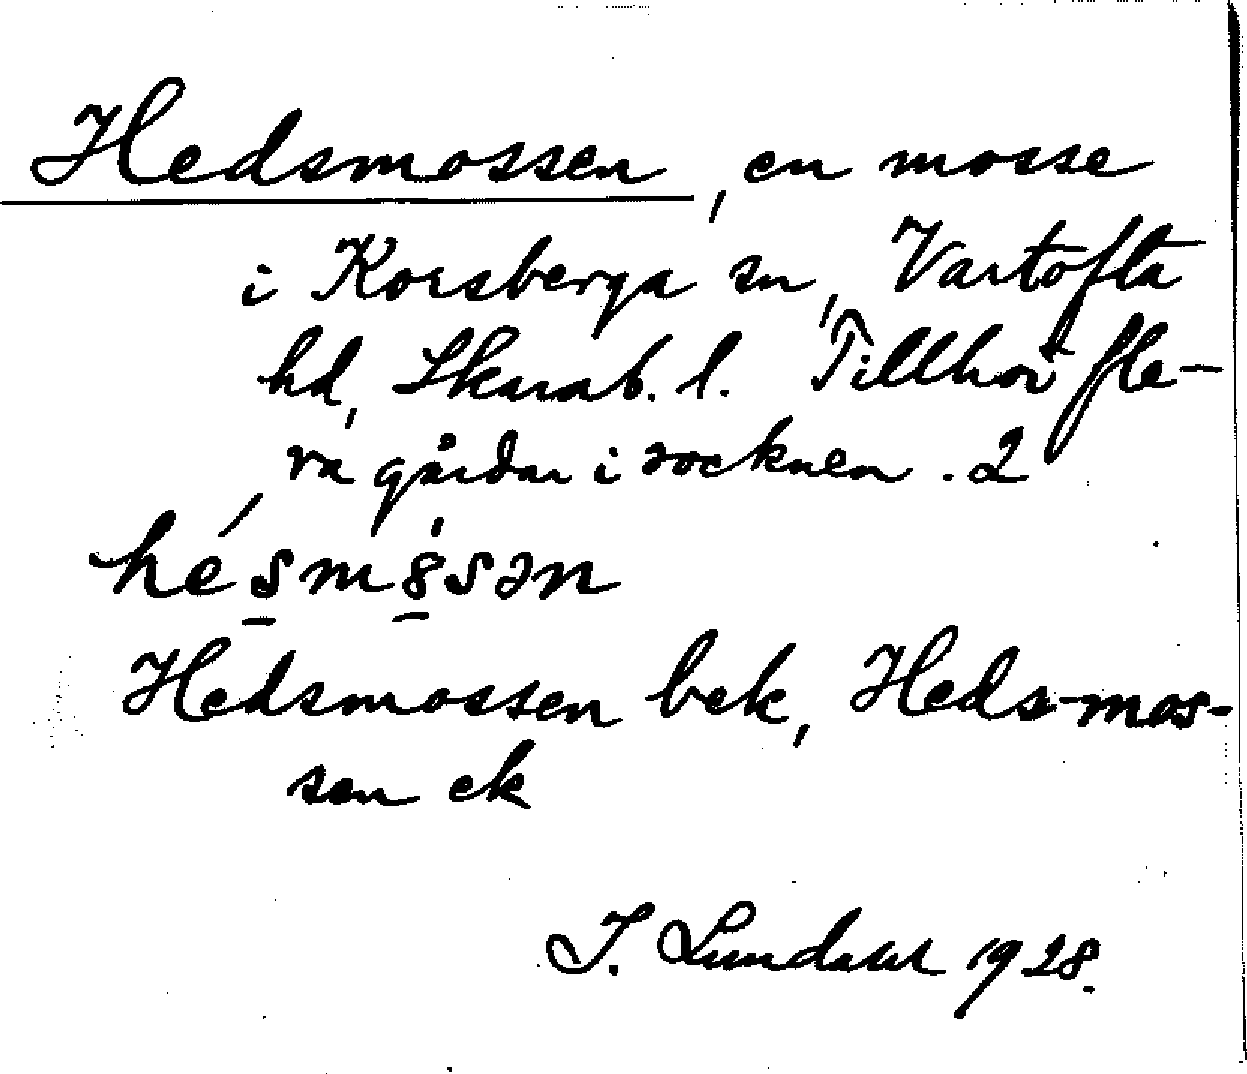 Hedsmossen, en mosse
i Korsberga sn, Vartofta
hd, Skarab. l. Tillhör fle-
ra gårdar i socknen. 2
Hedsmossen bek, Heds-mos-
sen ek
1928.